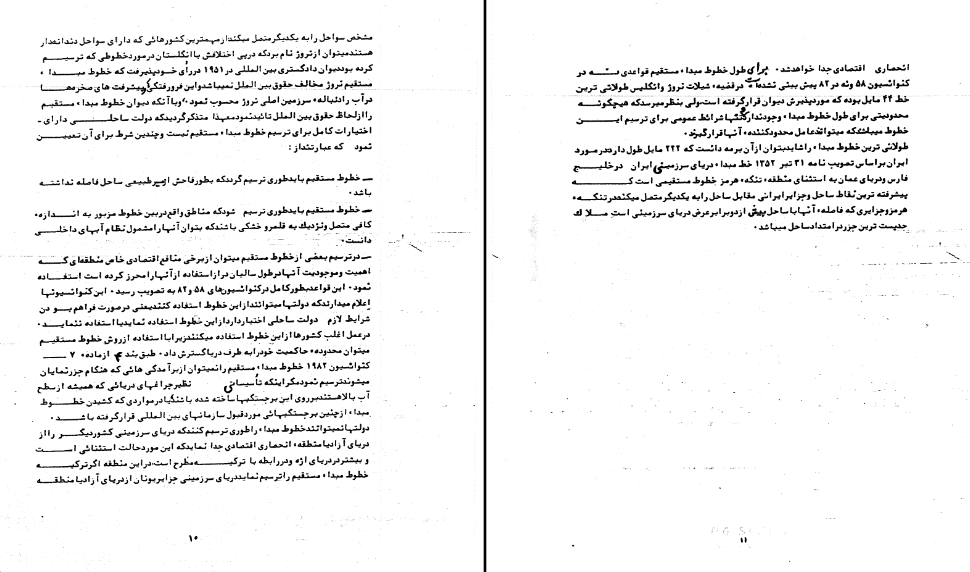 مشخص سواحل را به یکدیگر متصل میکند از مهمترین کشورهائی که دارای سواحل دندانه‌دار
هستند میتوان از نروژ نام برد که در پی اختلافش با انگلستان در مورد خطوطی که ترسیم
کرده بود دیوان دادگستری بین المللی در ۱۹۵۱ در رأی خود پذیرفت که خطوط مبداء
مستقیم نروژ مخالف حقوق بین الملل نمیباشد و این فرورفتگی و پیشرفت های صخره‌ها
در آب را دنباله سرزمین اصلی نروژ محسوب نمود، و با آنکه دیوان خطوط مبداء مستقیم
را از لحاظ حقوق بین الملل تائید نمود معهذا متذکر گردید که دولت ساحلی دارای
اختیارات کامل برای ترسیم خطوط مبداء مستقیم نیست و چندین شرط برای آن تعیین
نمود که عبارتند از :
ـ خطوط مستقیم باید طوری ترسیم گردد که بطور فاحش از مسیر طبیعی ساحل فاصله نداشته
باشد.
ـ خطوط مستقیم باید طوری ترسیم شود که مناطق واقع در بین خطوط مزبور به اندازه
کافی متصل و نزدیک به قلمرو خشکی باشند که بتوان آنها را مشمول نظام آبهای داخلی
دانست.
ـ در ترسیم بعضی از خطوط مستقیم میتوان از برخی منافع اقتصادی خاص منطقه‌ای که
اهمیت و موجودیت آنها در طول سالیان دراز استفاده از آنها را محرز کرده است استفاده
نمود. این قواعد بطور کامل در کنوانسیون‌های ۵۸ و ۸۲ به تصویب رسید. این کنوانسیونها
اعلام میدارند که دولتها میتوانند از این خطوط استفاده کنند یعنی در صورت فراهم بودن
شرایط لازم دولت ساحلی اختیار دارد از این خطوط استفاده نماید یا استفاده ننماید.
در عمل اغلب کشورها از این خطوط استفاده میکنند زیرا با استفاده از روش خطوط مستقیم
میتوان محدوده حاکمیت خود را به طرف دریا گسترش داد. طبق بند ۴ از ماده ۷
کنوانسیون ۱۹۸۲ خطوط مبداء مستقیم را نمیتوان از برآمدگی هائی که هنگام جزر نمایان
میشوند ترسیم نمود مگر اینکه تأسیساتی نظیر چراغهای دریائی که همیشه از سطح
آب بالا هستند بر روی این برجستگیها ساخته شده باشند یا در مواردی که کشیدن خطوط
مبداء از چنین برجستگیهائی مورد قبول سازمانهای بین المللی قرار گرفته باشد.
دولتها نمیتوانند خطوط مبداء را طوری ترسیم کنند که دریای سرزمینی کشور دیگر را از
دریای آزاد یا منطقه انحصاری اقتصادی جدا نماید که این مورد حالت استثنائی است
و بیشتر در دریای اژه و در رابطه با ترکیه مطرح است. در این منطقه اگر ترکیه
خطوط مبداء مستقیم را ترسیم نماید دریای سرزمینی جزایر یونان از دریای آزاد یا منطقه
۱۰
انحصاری اقتصادی جدا خواهد شد. برای طول خطوط مبداء مستقیم قواعدی نه در
کنوانسیون ۵۸ و نه در ۸۲ پیش بینی نشده است در قضیه شیلات نروژ و انگلیس طولانی ترین
خط ۴۴ مایل بوده که مورد پذیرش دیوان قرار گرفته است. ولی بنظر میرسد که هیچگونه
محدودیتی برای طول خطوط مبداء وجود ندارد و تنها شرائط عمومی برای ترسیم این
خطوط میباشد که میتواند عامل محدود کننده آنها قرار گیرد.
طولانی ترین خطوط مبداء را شاید بتوان از آن برمه دانست که ۲۲۲ مایل طول دارد. در مورد
ایران بر اساس تصویب نامه ۳۱ تیر ۱۳۵۲ خط مبداء دریای سرزمینی ایران در خلیج
فارس و دریای عمان به استثنای منطقه تنگه هرمز خطوط مستقیمی است که
پیشرفته ترین نقاط ساحل و جزایر ایرانی مقابل ساحل را به یکدیگر متصل میکند در تنگه
هرمز و جزایری که فاصله آنها با ساحل بیش از دو برابر عرض دریای سرزمینی است ملاک
جد پست ترین جزر در امتداد ساحل میباشد.
۱۱